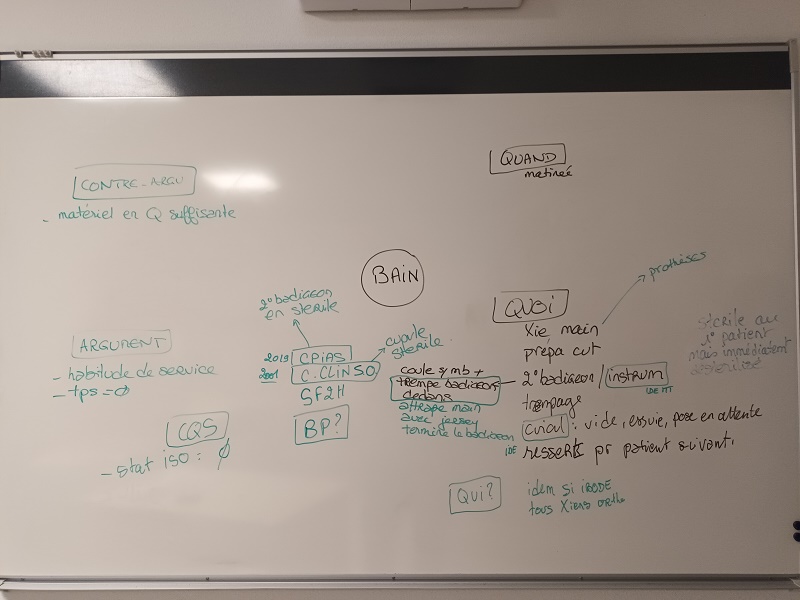 QUAND
matinée
CONTRE-ARGU
- matériel en Q suffisante
BAIN
ARGUMENT
- habitude de service
- tps = 0
CQS
- stat iso : 0
2° badigeon
en stérile
2019 CPIAS
2001 C.CLIN SO
SF2H
BP?
cupule
stérile
coule s/mb +
trempe badigeon
dedans
attrape main
avec jersey
termine le badigeon
QUOI
prothèses
Xie main
prépa cut
2° badigeon / instrum
trempage
: vide, essuie, pose en attente
IDE resserts pr patient suivant.
stérile au
1° patient
mais immédiatement
Qui?
idem si IBODE
tous Xiens ortho